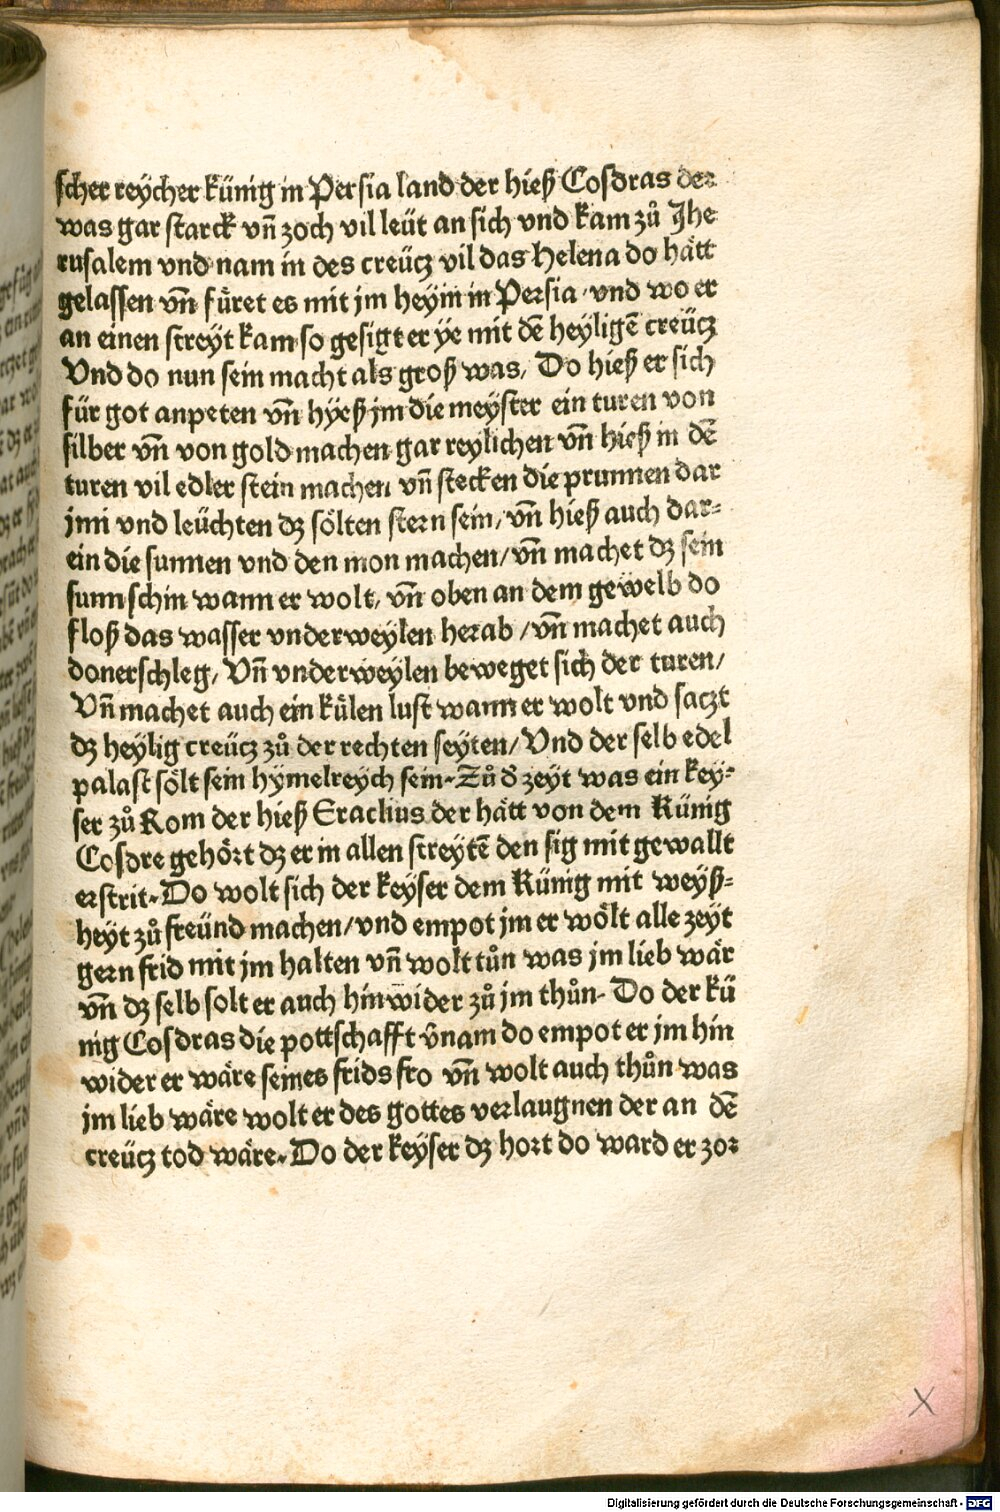 scher reycher künig in Persia land der hieß Cosdras der
was gar starck vn̄ zoch vil leüt an sich vnd kam zů Jhe
rusalem vnd nam in des creücz vil das Helena do hått
gelassen vn̄ füret es mit jm heym in Persia / vnd wo er
an einen streyt kam so gesigt er ye mit dē heyligē creücz
Vnd do nun sein macht als groß was / Do hieß er sich
für got anpeten vn̄ hyeß jm die meyster ein turen von
silber vn̄ von gold machen gar reylichen vn̄ hieß in dē
turen vil edler stein machen vn̄ stecken die prunnen dar
jnn vnd leüchten dz sölten stern sein / vn̄ hieß auch dar⸗
ein die sunnen vnd den mon machen / vn̄ machet dz sein
sunn schin wann er wolt / vn̄ oben an dem gewelb do
floß das wasser vnderweylen herab / vn̄ machet auch
donerschleg / Vn̄ vnderweylen beweget sich der turen /
Vn̄ machet auch ein külen lust wann er wolt vnd saczt
dz heylig creücz zů der rechten seyten / Vnd der selb edel
palast sölt sein hymelreych sein. Zů d̄ zeyt was ein key⸗
ser zů Rom der hieß Eraclius der hått von dem Künig
Cosdre gehört dz er in allen streytē den sig mit gewallt
erstrit. Do wolt sich der keyser dem Künig mit weyß⸗
heyt zů freünd machen / vnd empot jm er wölt alle zeyt
gern frid mit jm halten vn̄ wolt tůn was jm lieb wår
vn̄ dz selb solt er auch hinwider zů jm thůn. Do der kü
nig Cosdras die pottschafft v̄nam do empot er jm hin
wider er wåre seines frids fro vn̄ wolt auch thůn was
jm lieb wåre wolt er des gottes verlaugnen der an dē
creücz tod wåre. Do der keyser dz hort do ward er zor
X
Digitalisierung gefördert durch die Deutsche Forschungsgemeinschaft - DFG